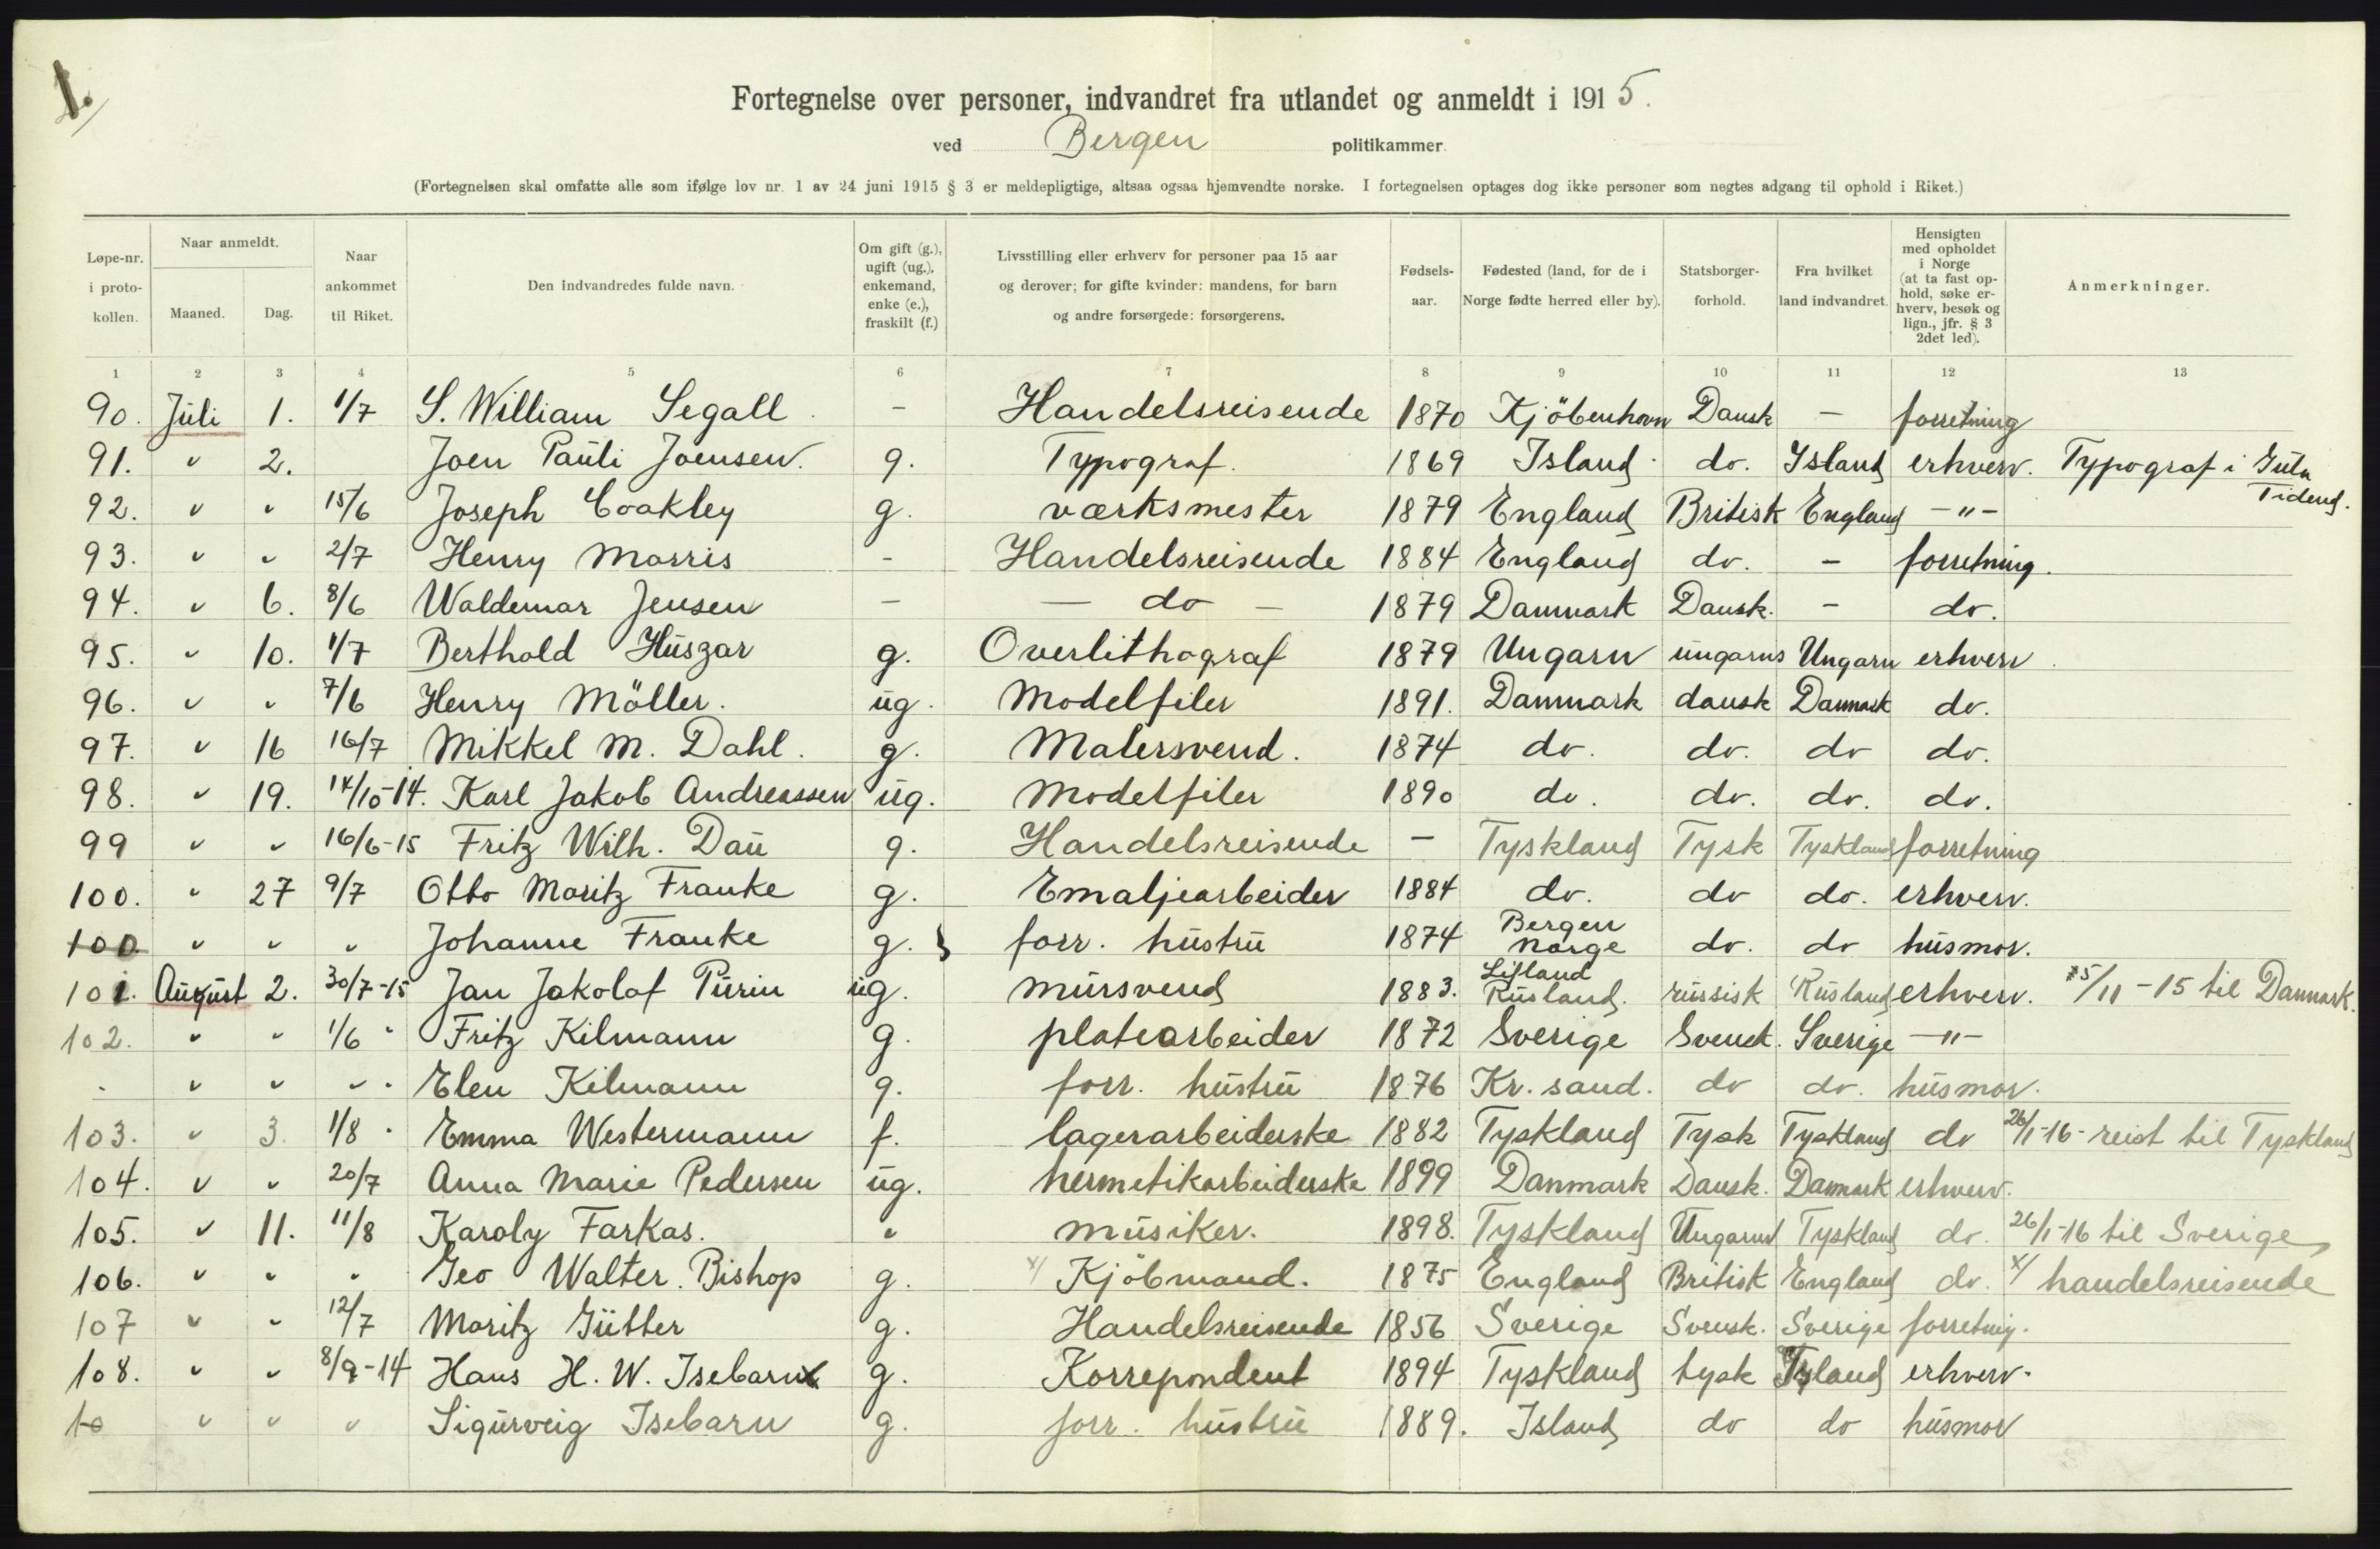 1.
Fortegnelse over personer, indvandret fra utlandet og anmeldt i 1915.
ved Bergen politikammer.
(Fortegnelsen skal omfatte alle som ifølge lov nr. 1 av 24 juni 1915 § 3 er meldepligtige, altsaa ogsaa hjemvendte norske. I fortegnelsen optages dog ikke personer som negtes adgang til ophold i Riket.)
Løpe-nr. i proto-kollen. Naar anmeldt. Maaned. Dag. Naar ankommet til Riket. Den indvandredes fulde navn. Om gift (g.), ugift (ug.), enkemand, enke (e.), fraskilt (f.) Livsstilling eller erhverv for personer paa 15 aar og derover; for gifte kvinder: mandens, for barn og andre forsørgede: forsørgerens. Fødsels-aar. Fødested (land, for de i Norge fødte herred eller by). Statsborger-forhold. Fra hvilket land indvandret. Hensigten med opholdet i Norge (at ta fast op-hold, søke er-hverv, besøk og lign., jfr. § 3 2det led). Anmerkninger.
1 2 3 4 5 6 7 8 9 10 11 12 13
90. Juli 1. 1/7 S. William Segall. - Handelsreisende 1870 Kjöbenhavn Dansk - forretning
91. " 2. Joen Pauli Joensen. g. Typograf. 1869 Island do. Island erhverv. Typograf i Gula Tidend.
92. " " 15/6 Joseph Coakley g. værksmester 1879 England Britisk England -"-
93. " " 2/7 Henry Morris - Handelsreisende 1884 England do. - forretning.
94. " 6. 8/6 Waldemar Jensen - - do - 1879 Danmark Dansk. - do.
95. " 10. 1/7 Berthold Huszar g. Overlithograf 1879 Ungarn ungarns Ungarn erhverv.
96. " " 7/6 Henry Möller. ug. Modelfiler 1891. Danmark dansk Danmark do.
97. " 16 16/7 Mikkel M. Dahl. g. Malersvend. 1874 do. do. do do.
98. " 19. 14/10-14. Karl Jakob Andreassen ug. Modelfiler 1890 do. do. do. do.
99 " " 16/6-15 Fritz Wilh. Dau g. Handelsreisende - Tyskland Tysk Tyskland forretning
100. " 27 9/7 Otto Moritz Franke g. Emaljearbeider 1884 do. do do. erhverv.
100. " " " Johanne Franke g. forr. hustru 1874 Bergen Norge do. do husmor.
101. August 2. 30/7-15 Jan Jakolaf Purin ug. mursvend 1883. Lifland Rusland. russisk Rusland erhverv. 15/11-15 til Danmark.
102. " " 1/6 " Fritz Kilmann g. platearbeider 1872 Sverige Svensk. Sverige -"-
. " " " . Elen Kilmann g. forr. hustru 1876 Kr. sand. do do. husmor.
103. " 3. 1/8 " Emma Westermann f. lagerarbeiderske 1882 Tyskland Tysk Tyskland do 26/1-16 - reist til Tyskland
104. " " 20/7 Anna Marie Pedersen ug. hermetikarbeiderske 1899 Danmark Dansk. Danmark erhverv.
105. " 11. 11/8 Karoly Farkas. " musiker. 1898. Tyskland Ungarns Tyskland do. 26/1-16 til Sverige
106. " " " Geo Walter Bishop g. x/ Kjöbmand. 1875 England Britisk England do. x/ handelsreisende
107 " " 12/7 Moritz Gütter g. Handelsreisende 1856 Sverige Svensk. Sverige forretnig.
108. " " 8/9-14 Hans H. W. Isebarn g. Korrepondent 1894 Tyskland tysk Island erhverv.
10 " " " Sigurveig Isebarn g. forr. hustru 1889. Island do do husmor